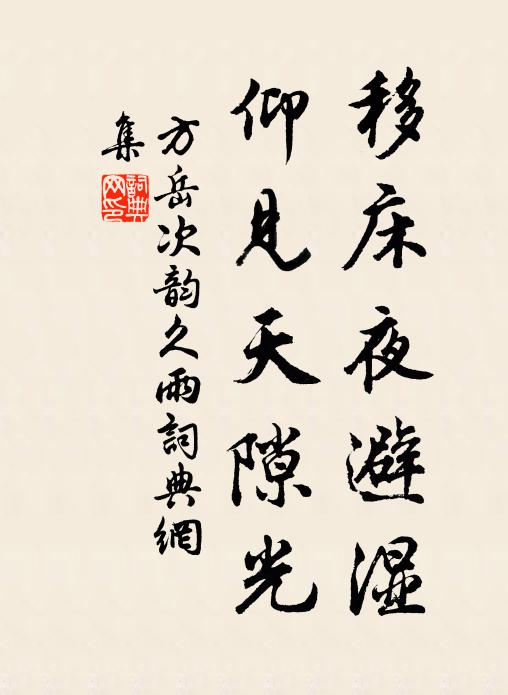 移床夜避湿
仰见天隙光
方岳次韵久雨詞典網
集
詞典网印